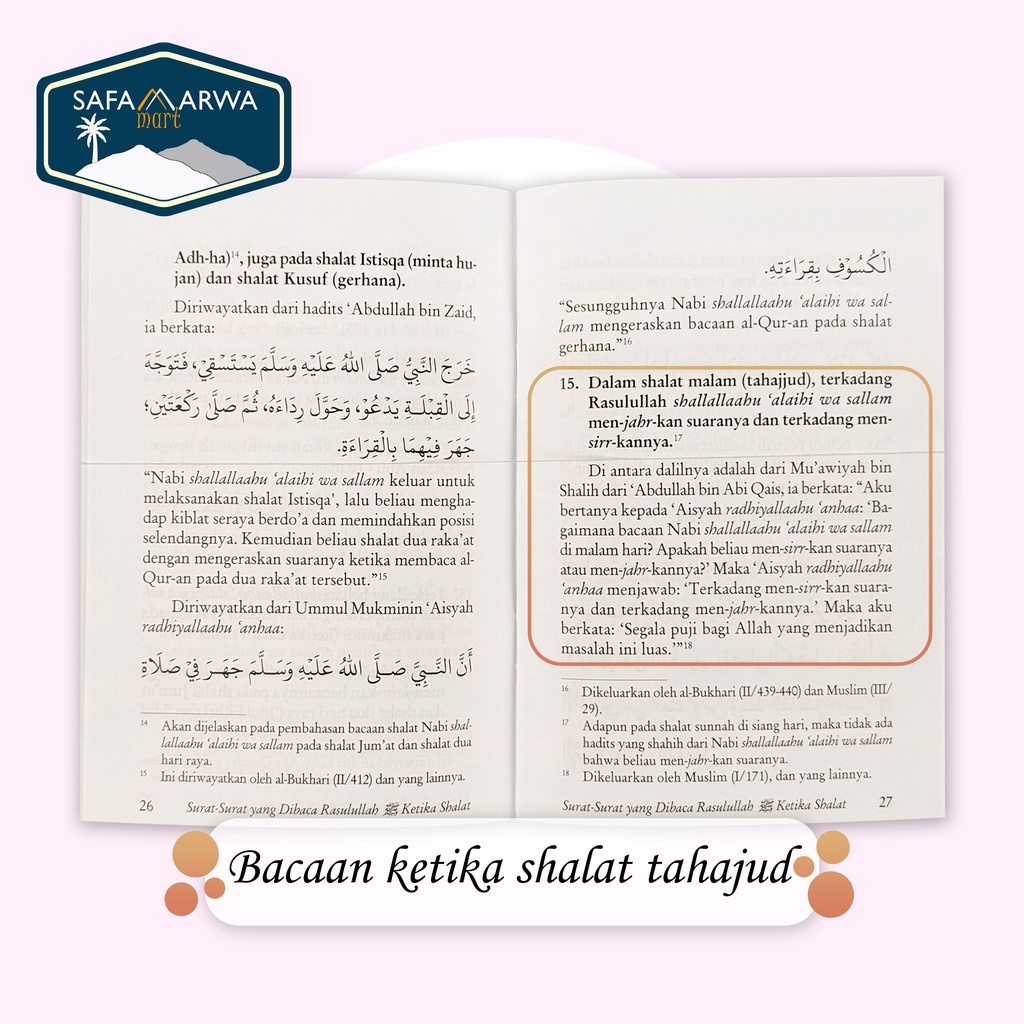 SAFA MARWA
mart
Adh-ha)¹⁴, juga pada shalat Istisqa (minta hu-
jan) dan shalat Kusuf (gerhana).
Diriwayatkan dari hadits ‘Abdullah bin Zaid,
ia berkata:
خَرَجَ النَّبِيُّ صَلَّى اللهُ عَلَيْهِ وَسَلَّمَ يَسْتَسْقِيْ، فَتَوَجَّهَ
إِلَى الْقِبْلَةِ يَدْعُوْ، وَحَوَّلَ رِدَاءَهُ، ثُمَّ صَلَّىٰ رَكْعَتَيْنِ؛
جَهَرَ فِيْهِمَا بِالْقِرَاءَةِ.
“Nabi shallallaahu ‘alaihi wa sallam keluar untuk
melaksanakan shalat Istisqa', lalu beliau mengha-
dap kiblat seraya berdo’a dan memindahkan posisi
selendangnya. Kemudian beliau shalat dua raka’at
dengan mengeraskan suaranya ketika membaca al-
Qur-an pada dua raka’at tersebut.”¹⁵
Diriwayatkan dari Ummul Mukminin ‘Aisyah
radhiyallaahu ‘anhaa:
أَنَّ النَّبِيَّ صَلَّى اللهُ عَلَيْهِ وَسَلَّمَ جَهَرَ فِيْ صَلَاةِ
¹⁴ Akan dijelaskan pada pembahasan bacaan shalat Nabi shal-
lallaahu ‘alaihi wa sallam pada shalat Jum’at dan shalat dua
hari raya.
¹⁵ Ini diriwayatkan oleh al-Bukhari (II/412) dan yang lainnya.
26 Surat-Surat yang Dibaca Rasulullah ﷺ Ketika Shalat
الْكُسُوْفِ بِقِرَاءَتِهِ.
“Sesungguhnya Nabi shallallaahu ‘alaihi wa sal-
lam mengeraskan bacaan al-Qur-an pada shalat
gerhana.”¹⁶
15. Dalam shalat malam (tahajjud), terkadang
Rasulullah shallallaahu ‘alaihi wa sallam
men-jahr-kan suaranya dan terkadang men-
sirr-kannya.¹⁷
Di antara dalilnya adalah dari Mu’awiyah bin
Shalih dari ‘Abdullah bin Abi Qais, ia berkata: “Aku
bertanya kepada ‘Aisyah radhiyallaahu ‘anhaa: ‘Ba-
gaimana bacaan Nabi shallallaahu ‘alaihi wa sallam
di malam hari? Apakah beliau men-sirr-kan suaranya
atau men-jahr-kannya?’ Maka ‘Aisyah radhiyallaahu
‘anhaa menjawab: ‘Terkadang men-sirr-kan suara-
nya dan terkadang men-jahr-kannya.’ Maka aku
berkata: ‘Segala puji bagi Allah yang menjadikan
masalah ini luas.’”¹⁸
¹⁶ Dikeluarkan oleh al-Bukhari (II/439-440) dan Muslim (III/
29).
¹⁷ Adapun pada shalat sunnah di siang hari, maka tidak ada
hadits yang shahih dari Nabi shallallaahu ‘alaihi wa sallam
bahwa beliau men-jahr-kan suaranya.
¹⁸ Dikeluarkan oleh Muslim (I/171), dan yang lainnya.
Surat-Surat yang Dibaca Rasulullah ﷺ Ketika Shalat 27
Bacaan ketika shalat tahajud